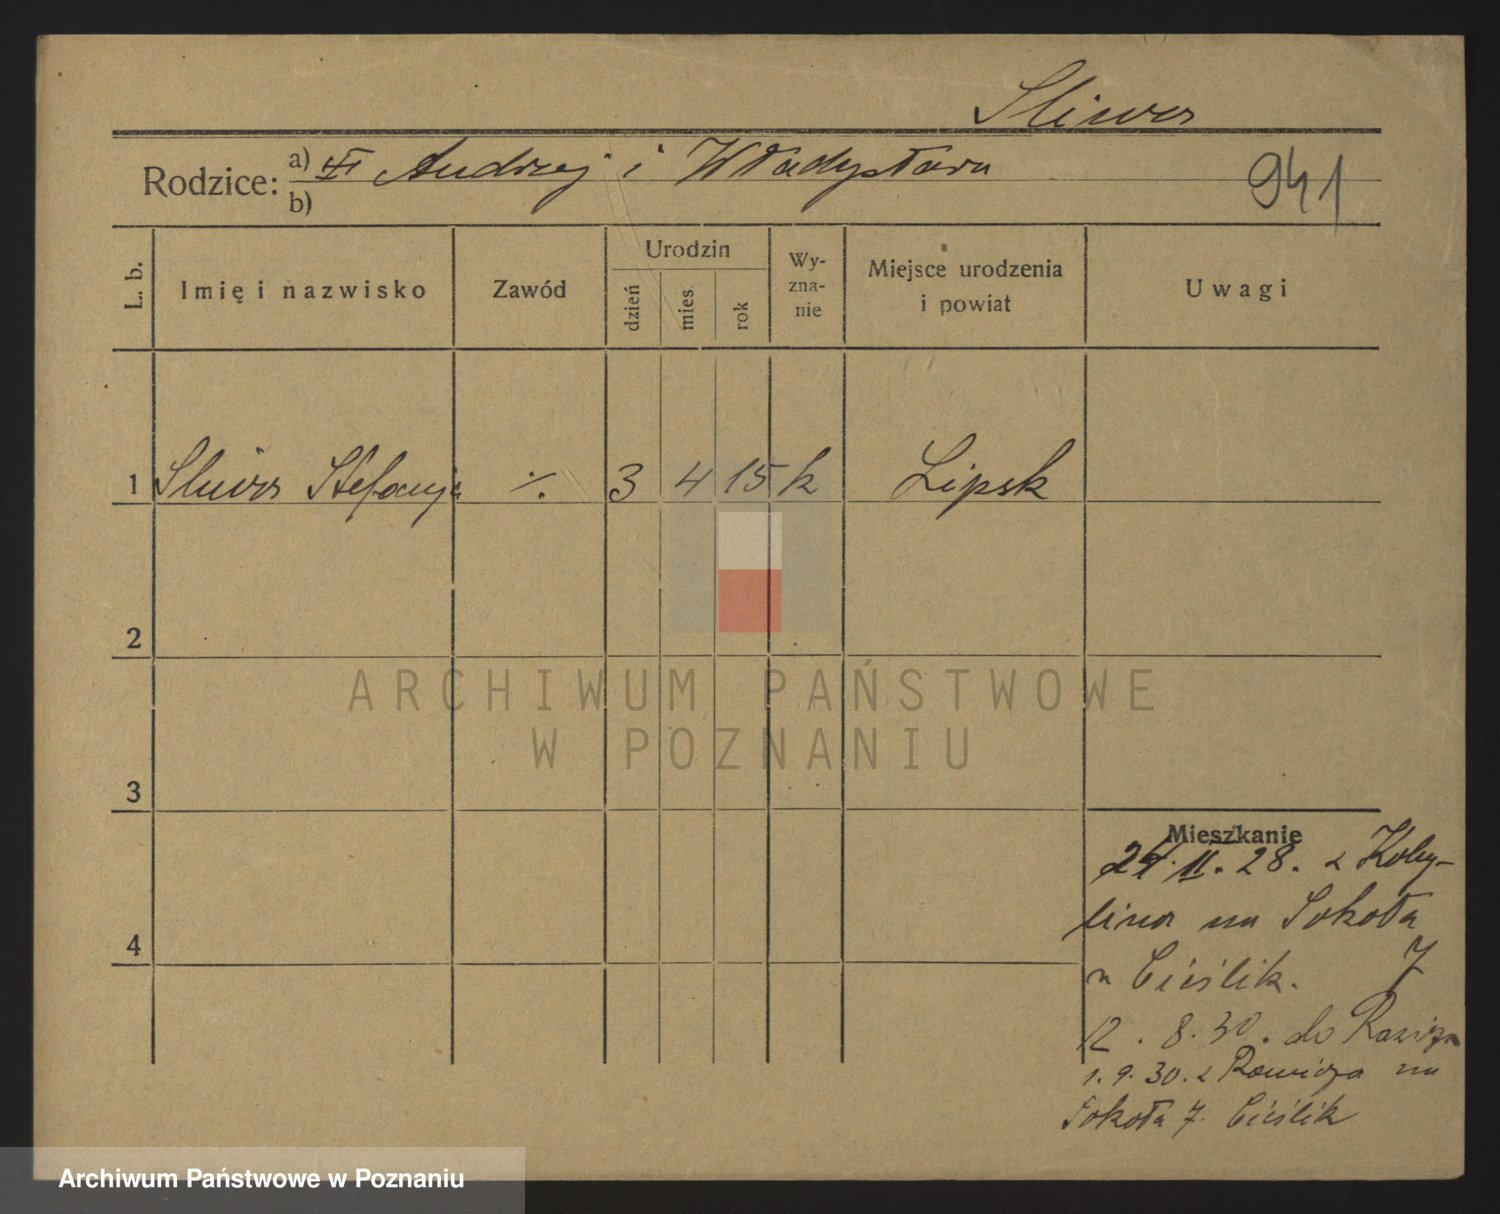 Sliwa
Rodzice: a) VI Andrzej i Władysława
b)
941
L. b.
Imię i nazwisko
Zawód
Urodzin
dzień
mies.
rok
Wy-
zna-
nie
Miejsce urodzenia
i powiat
Uwagi
1 Sliwa Stefanja ./. 3 4 15 k Lipsk
2
3
4
Mieszkanie
24.II.28. z Koby-
lina na Sokoła
u Cieślik. 7
12.8.30. do Rawicza
1.9.30. z Rawicza na
Sokoła 7. Cieślik
ARCHIWUM PAŃSTWOWE
W POZNANIU
Archiwum Państwowe w Poznaniu